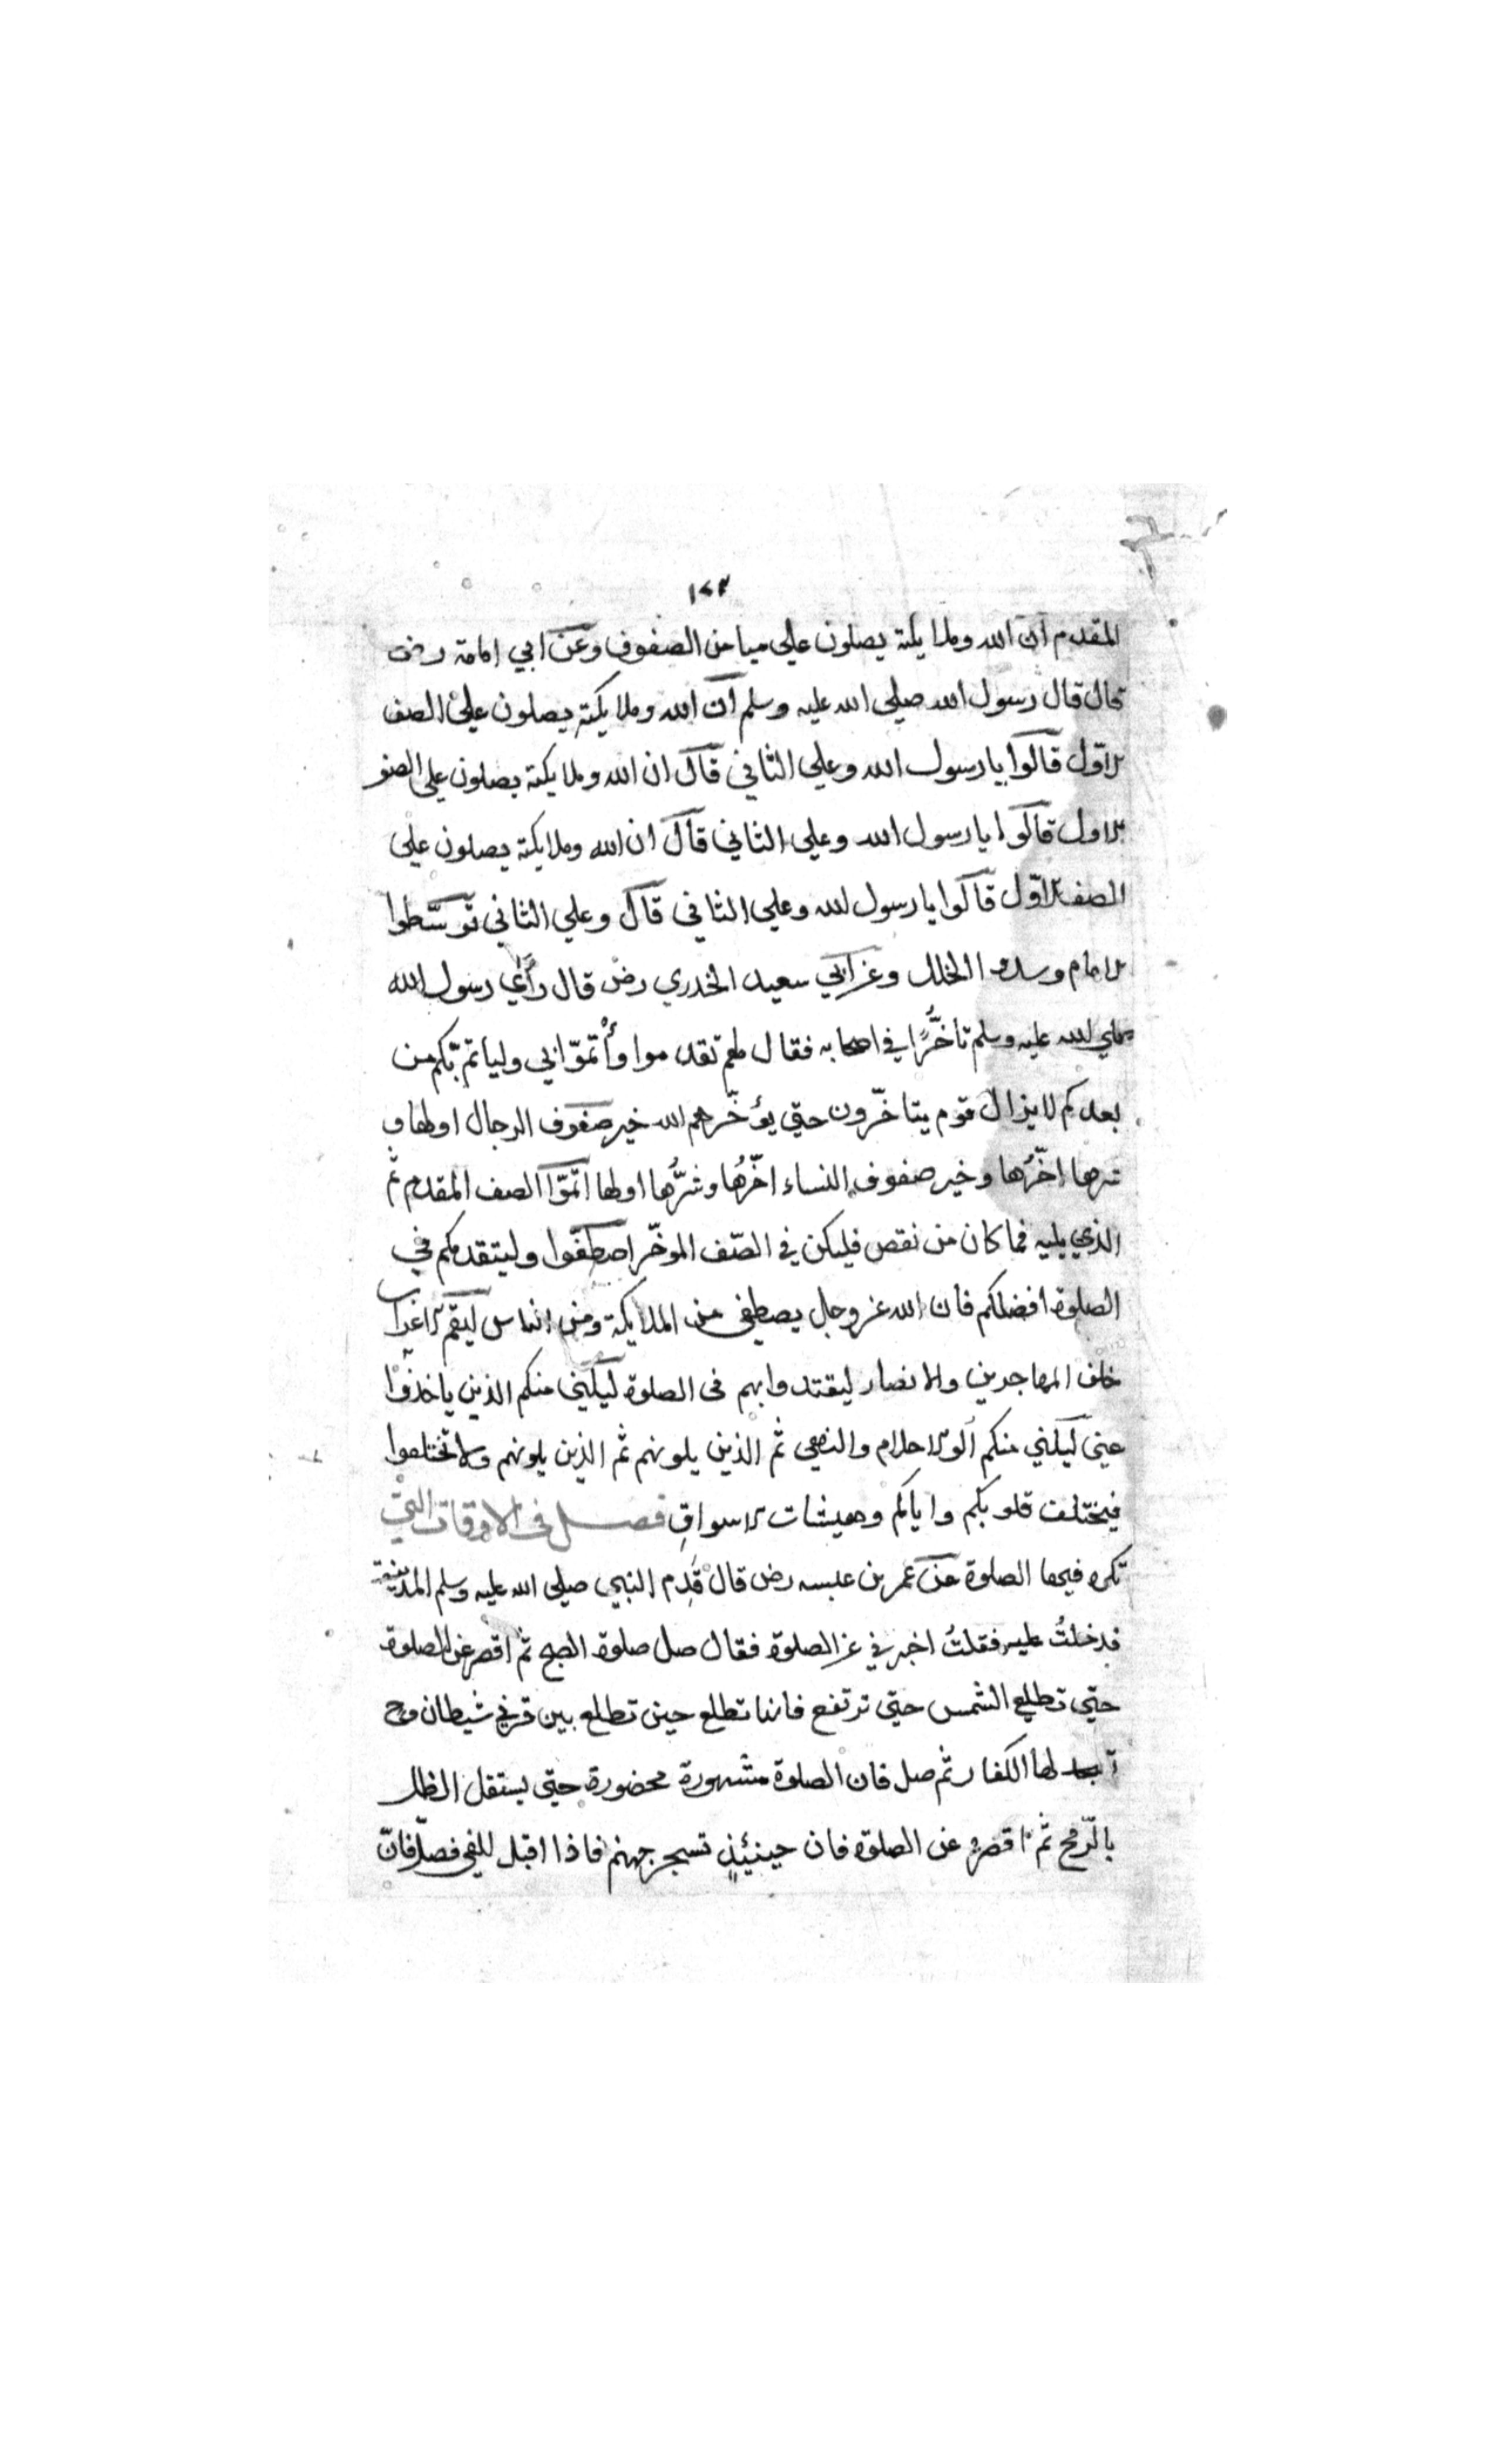 ١٤٣
المقدم ان الله وملايكته يصلون علي ميامن الصفوف وعن ابي امامة رض
قال قال رسول الله صلي الله عليه وسلم ان الله وملايكته يصلون علي الصف
الاوّل قالوا يا رسول الله وعلي الثاني قال ان الله وملايكته يصلون علي الصف
الاول قالوا يا رسول الله وعلي الثاني قال ان الله وملايكته يصلون علي
الصف الاوّل قالوا يا رسول الله وعلي الثاني قال وعلي الثاني توسّطوا
الامام وسدوا الخلل وعن ابي سعيد الخدري رض قال رأي رسول الله
صلي الله عليه وسلم تاخُّرًا في اصحابه فقال لهم تقدموا وأْتمّوا بي ولياتمّ بكم من
بعدكم لا يزال قوم يتاخّرون حتي يؤخّرهم الله خير صفوف الرجال اولها و
شرها اخّرُها وخير صفوف النساء اخّرُها وشرُّها اولها اتمّوا الصف المقدم ثم
الذي يليه فما كان من نقص فليكن في الصّف الموخّر اصطفّوا وليتقدمكم في
الصلوة افضلكم فان الله عز وجل يصطفي من الملايكة ومن الناس ليقم الاعراب
خلف المهاجرين والانصار ليقتدوا بهم في الصلوة ليليني منكم الذين ياخذوا
عني ليليني منكم الوا الاحلام والنهي ثم الذين يلونهم ثم الذين يلونهم ولا تختلفوا
فيختلف قلوبكم واياكم وهيشات الاسواقِ فصل في الاوقات التي
تكره فيها الصلوة عن عمر بن عبسه رض قال قَدِم النبي صلي الله عليه وسلم المدينة
فدخلتُ عليه فقلتُ اخبرني عن الصلوة فقال صل صلوة الصبح ثم اقصر عن الصلوة
حتي تطلع الشمس حتي ترتفع فانها تطلع حين تطلع بين قرني شيطان وح
لها الكفار ثم صل فان الصلوة مشهورة محضورة حتي يستقل الظل
بالرّمح ثم اقصر عن الصلوة فان حينئِذٍ تسجر جهنم فاذا اقبل الفي فصلّ فانّ